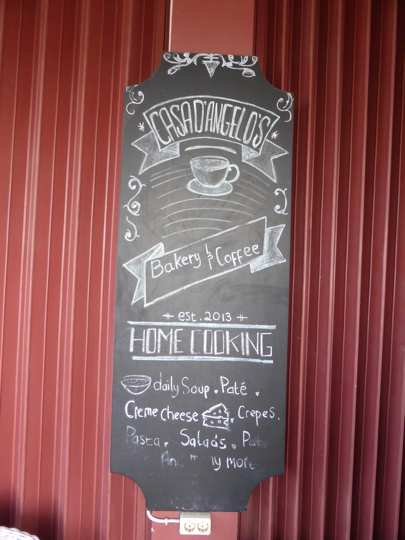 CASA D'ANGELO'S
Bakery & Coffee
est. 2013
HOME COOKING
daily Soup. Paté.
Creme cheese, Crepes.
Pasta. Salads.
more